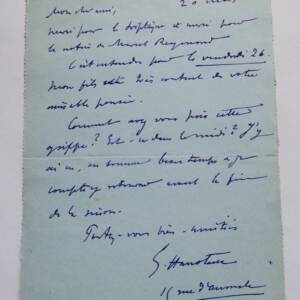 Mon cher ami, 20 mars
merci pour le triptyque et merci pour
la notice de Marcel Reymond
C'est entendu pour le vendredi 26.
Mon fils est très content de votre
aimable pensée.
Comment avez vous pris cette
grippe? Est-ce dans le midi? J'y
ai eu, en somme beau temps et je
compte y retourner avant la fin
de la saison.
Portez-vous bien - amitiés
G. Hanotaux
15 rue d'Aumale